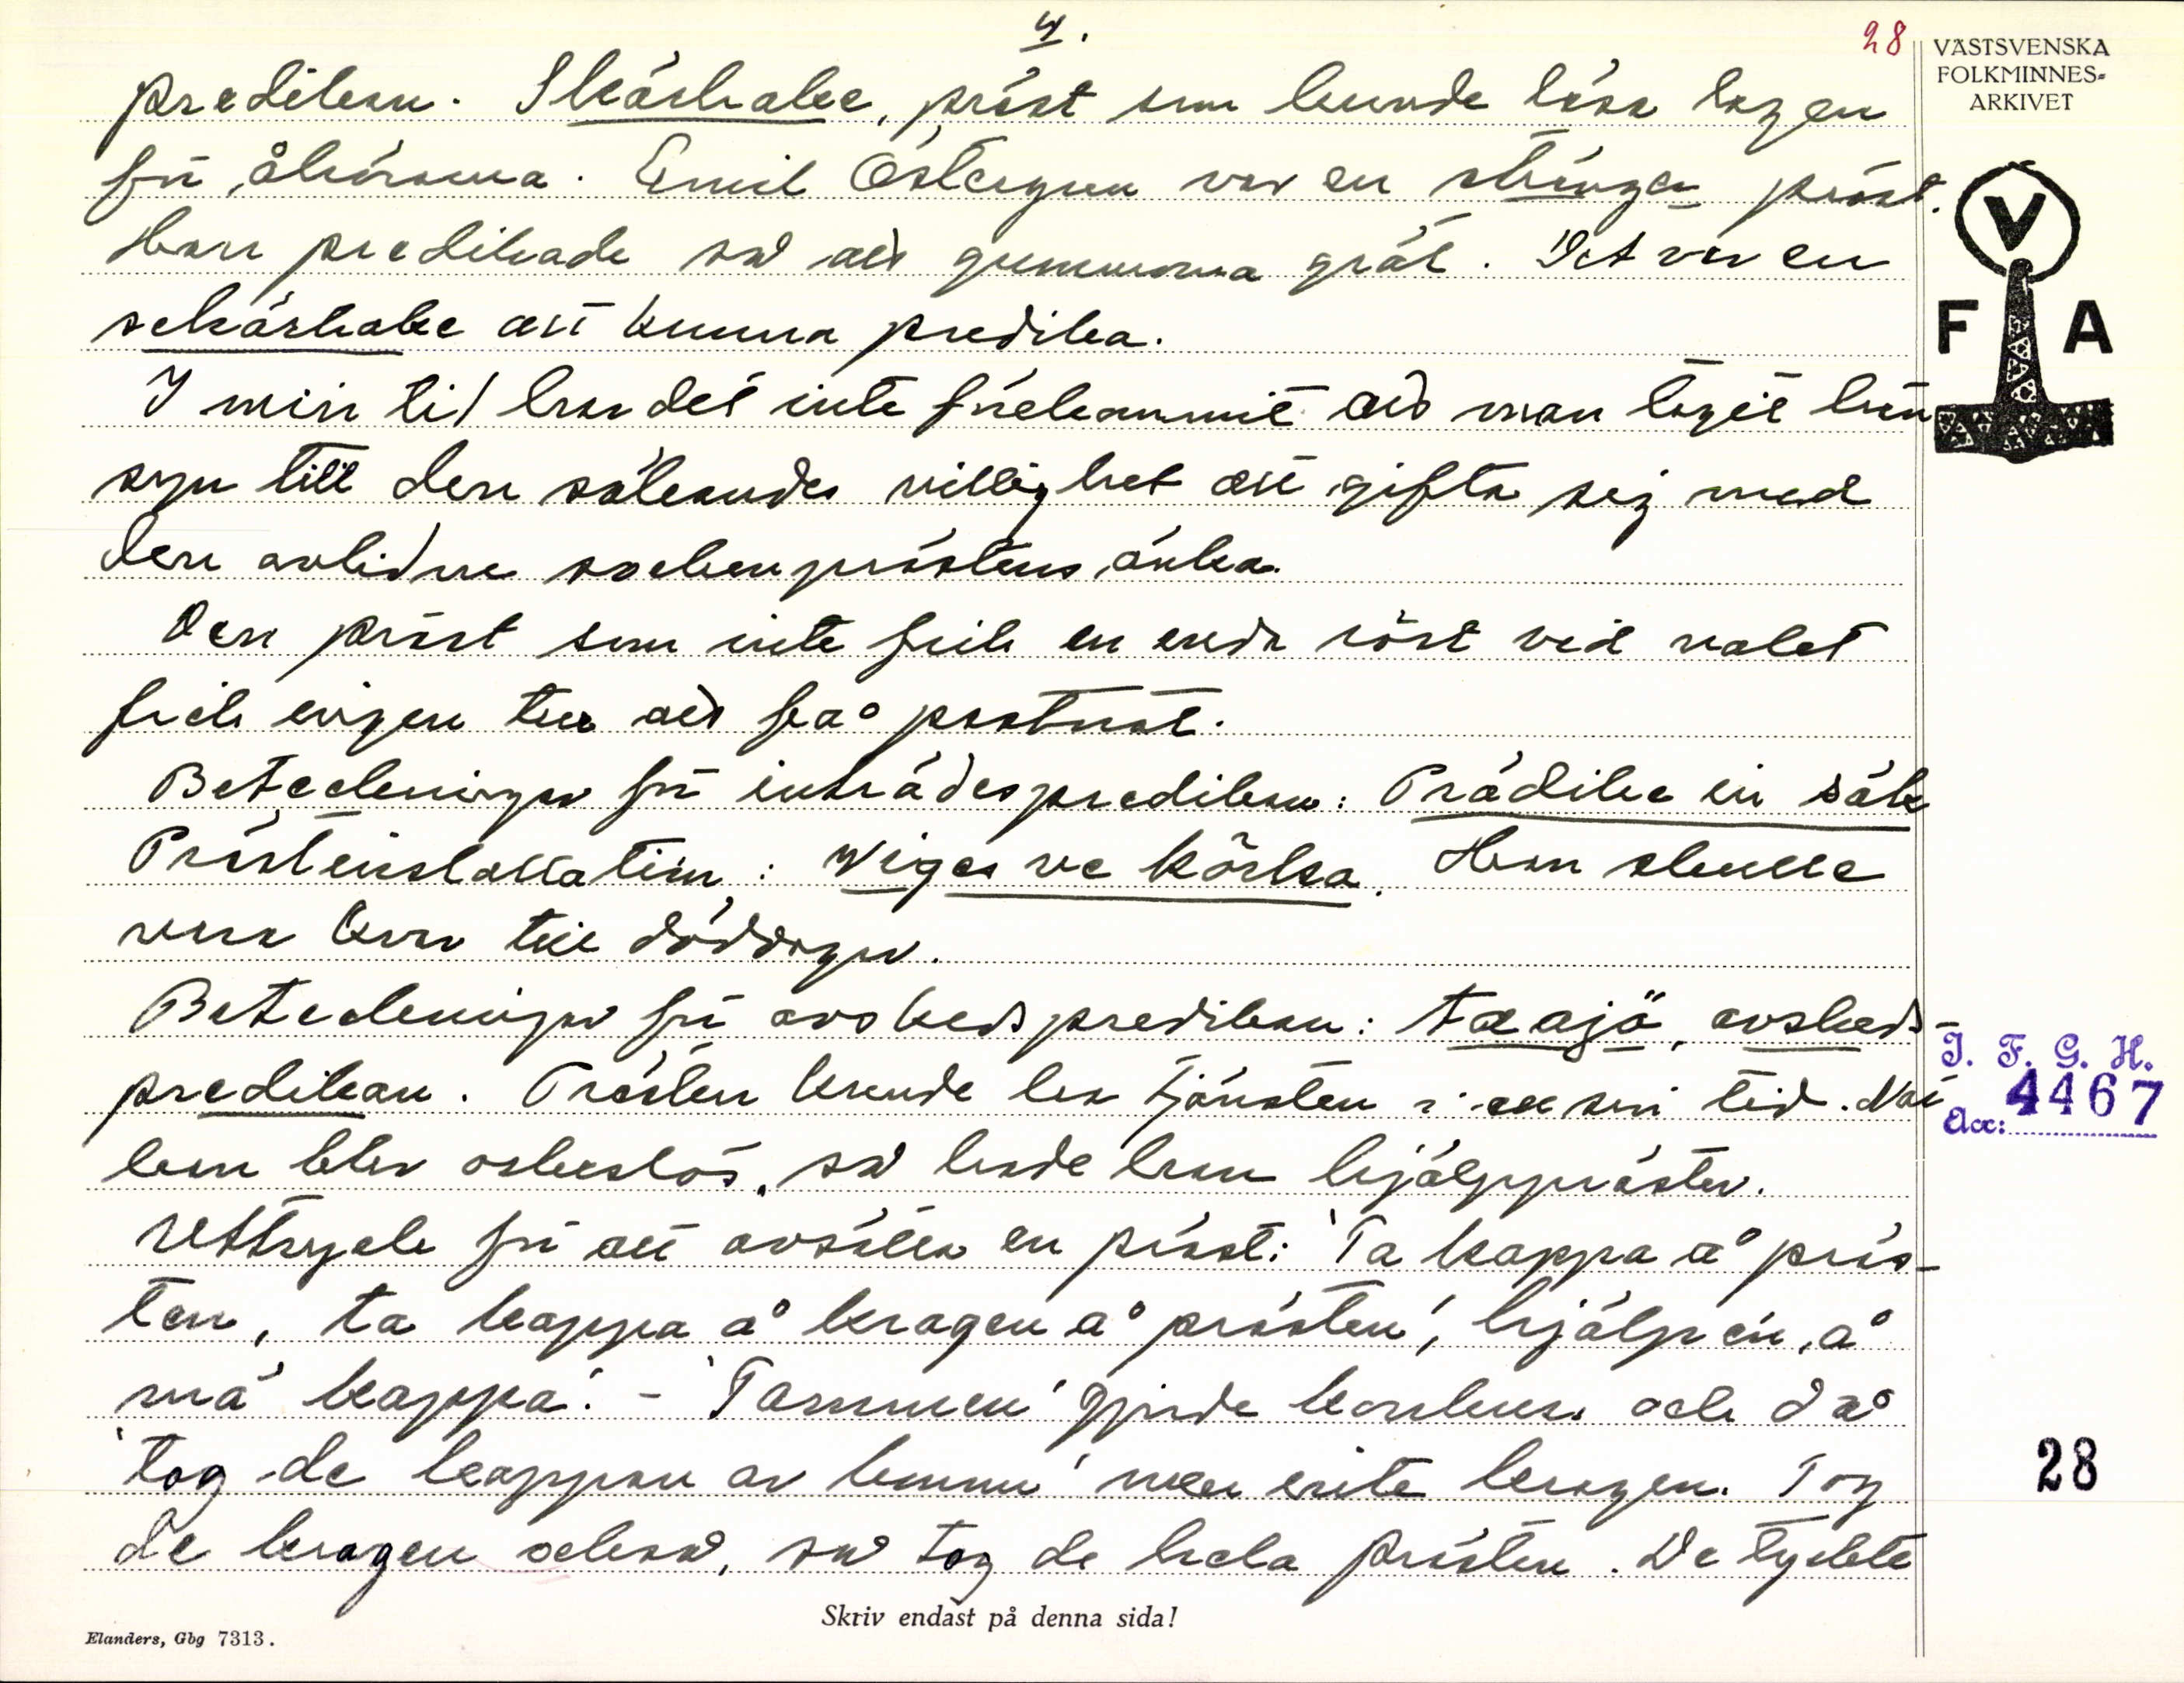 4.
28
VÄSTSVENSKA
FOLKMINNES-
ARKIVET
predikan. Skärhake, präst som kunde läsa lagen
för åhörarna. Emil Östergren var en stränger präst.
Han predikade så att gummorna grät. Det var en
schärhake att kunna predika.
I min tid har det inte förekommit att man tagit hän
syn till den sökandes villighet att gifta sig med
den avlidne sockenprästens änka.
Den präst som inte fick en enda röst vid valet
fick ingen tur att få pastorat.
Beteckningar för inträdespredikan: Prädike in säk
Prästinstallation: Viges ve körka. Han skulle
vara kvar till döddagar.
Beteckningar för avskedspredikan: ta ajö, avskeds-
predikan. Prästen kunde ha tjänsten i all sin tid. När
han blev orkeslös, så hade han hjälppräster.
Uttryck för att avsätta en präst: 'Ta kappa å präs-
ten, ta kappa å kragen å prästen', hjälp en, å
må kappa'. - 'Tammen' gjorde konkurs och då
'tog de kappan av honom' men inte kragen. Tog
de kragen också, så tog de hela prästen. De tyckte
V
F A
I. F. G. H.
Acc: 4467
28
Skriv endast på denna sida!
Elanders, Gbg 7313.